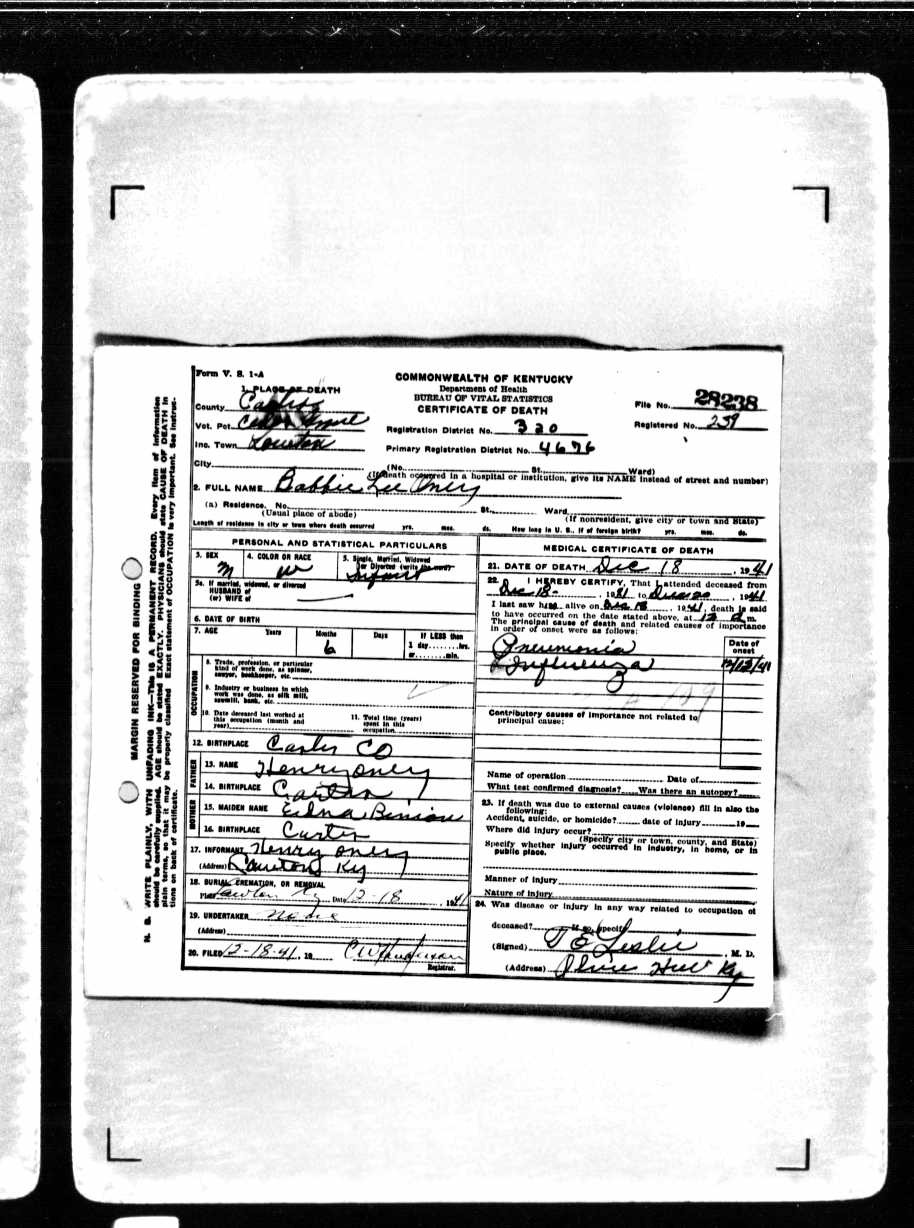 Form V. S. 1-A
COMMONWEALTH OF KENTUCKY
Department of Health
BUREAU OF VITAL STATISTICS
CERTIFICATE OF DEATH
File No. 28238
Registered No. 259
Registration District No. 320
Primary Registration District No. 4676
1. PLACE OF DEATH
County Carter
Vot. Pct.
Inc. Town Lawton
City
(No. St. Ward)
(If death occurred in a hospital or institution, give its NAME instead of street and number)
2. FULL NAME Bobbie Lee Oney
(a) Residence. No. St. Ward
(Usual place of abode)
(If nonresident, give city or town and State)
Length of residence in city or town where death occurred yrs. mos. ds. How long in U. S., if of foreign birth? yrs. mos. ds.
PERSONAL AND STATISTICAL PARTICULARS
3. SEX M
4. COLOR OR RACE W
5. Single, Married, Widowed
or Divorced (write the word)
Infant
5a. If married, widowed, or divorced
HUSBAND of
(or) WIFE of
6. DATE OF BIRTH
7. AGE Years Months Days If LESS than
6
1 day hrs.
or min.
OCCUPATION
8. Trade, profession, or particular
kind of work done, as spinner,
sawyer, bookkeeper, etc.
9. Industry or business in which
work was done, as silk mill,
sawmill, bank, etc.
10. Date deceased last worked at
this occupation (month and
year)
11. Total time (years)
spent in this
occupation
12. BIRTHPLACE Carter CO
FATHER
13. NAME Henry Oney
14. BIRTHPLACE Carter
MOTHER
15. MAIDEN NAME Edna Binion
16. BIRTHPLACE Carter
17. INFORMANT Henry Oney
(Address) Lawton Ky
18. BURIAL, CREMATION, OR REMOVAL
Place Lawton Ky Date 12-18 1941
19. UNDERTAKER None
(Address)
20. FILED 12-18-41, 19
Registrar.
MEDICAL CERTIFICATE OF DEATH
21. DATE OF DEATH Dec 18, 1941
22. I HEREBY CERTIFY, That I attended deceased from
Dec 18-, 1941 to , 1941
I last saw h alive on Dec 18, 1941, death is said
to have occurred on the date stated above, at 12 m.
The principal cause of death and related causes of importance
in order of onset were as follows:
Date of
onset
Pneumonia
Influenza
12/12/41
Contributory causes of importance not related to
principal cause:
Name of operation Date of
What test confirmed diagnosis? Was there an autopsy?
23. If death was due to external causes (violence) fill in also the
following:
Accident, suicide, or homicide? date of injury 19
Where did injury occur?
(Specify city or town, county, and State)
Specify whether injury occurred in industry, in home, or in
public place.
Manner of injury
Nature of injury
24. Was disease or injury in any way related to occupation of
deceased? If so, specify
(Signed) J E Leslie, M. D.
(Address) Olive Hill Ky
MARGIN RESERVED FOR BINDING
N. B. WRITE PLAINLY, WITH UNFADING INK—This IS A PERMANENT RECORD. Every item of information
should be carefully supplied. AGE should be stated EXACTLY. PHYSICIANS should state CAUSE OF DEATH in
plain terms, so that it may be properly classified. Exact statement of OCCUPATION is very important. See instruc-
tions on back of certificate.